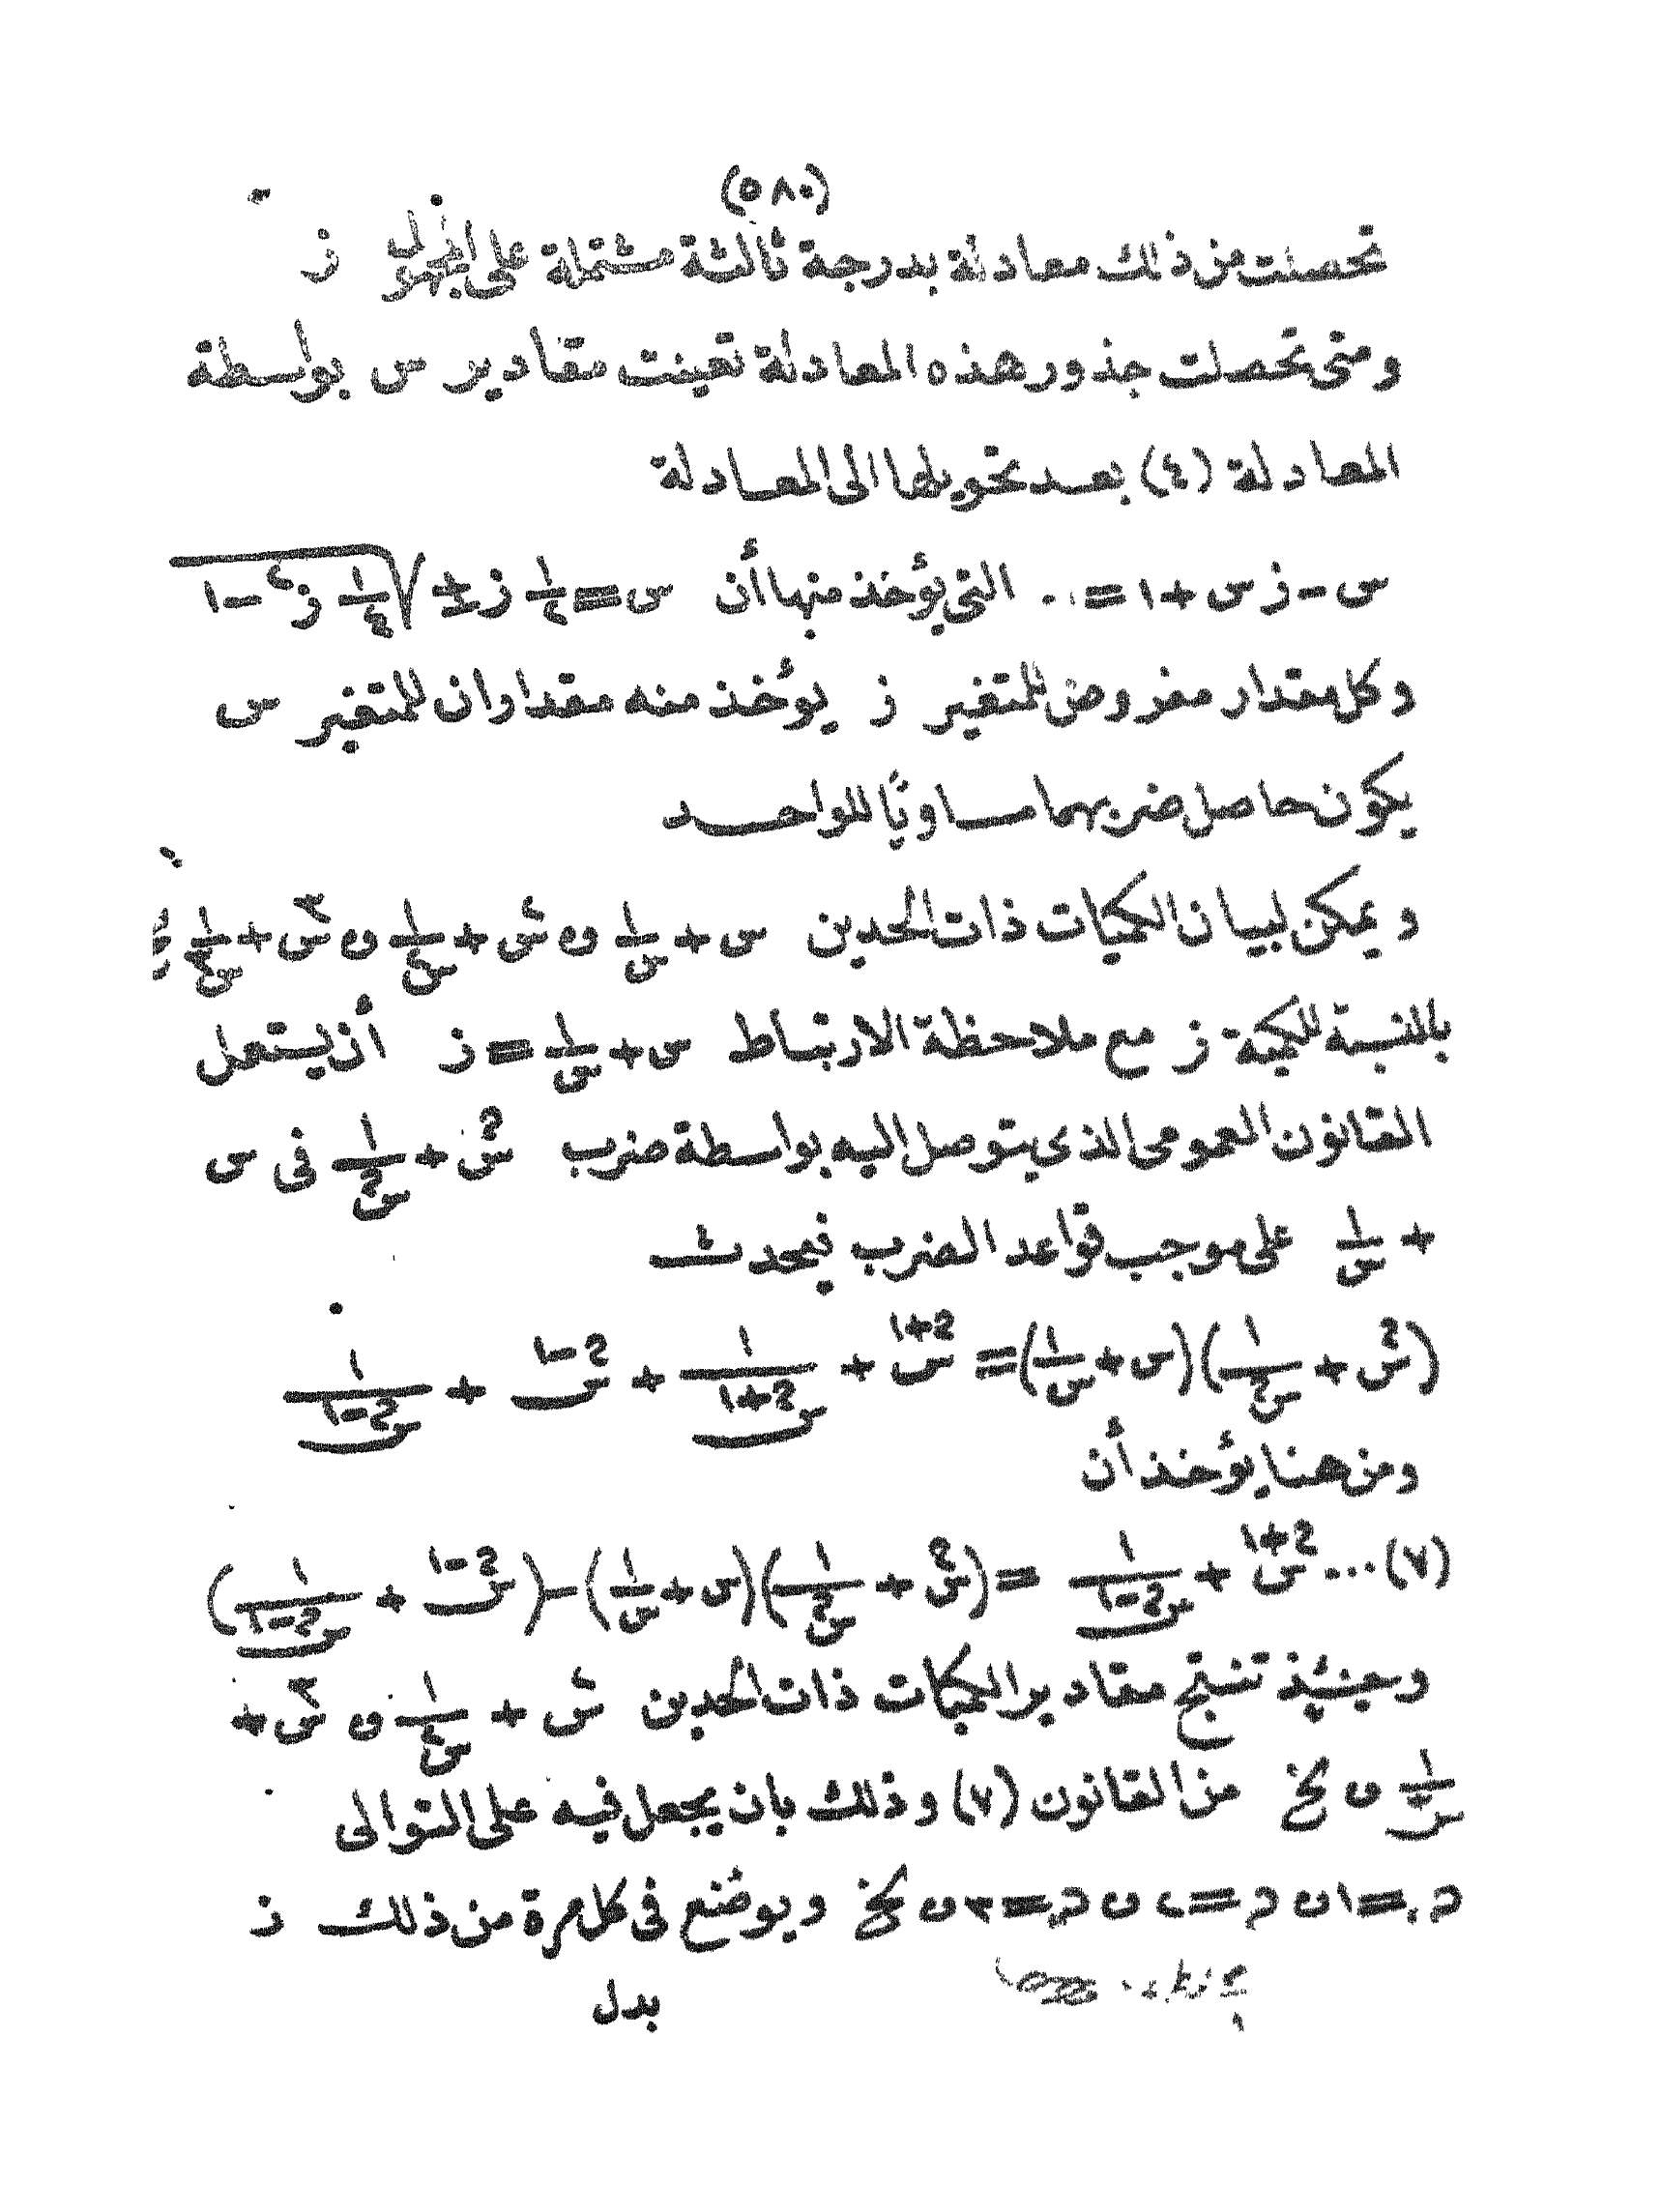 (٥٨٠)
تحصلت من ذلك معادلة بدرجة ثالثة مشتملة على المجهول ز
ومتى تحصلت جذور هذه المعادلة تعينت مقادير س بواسطة
المعادلة (٤) بعد تحويلها الى المعادلة
س − ز س + ١ = ٠ التى يؤخذ منها أن س = ١/٢ ز ± √(١/٤ ز٢ − ١)
وكل مقدار مفروض للمتغير ز يؤخذ منه مقداران للمتغير س
يكون حاصل ضربهما مساويًا للواحد
ويمكن لبيان الكميات ذات الحدين س + ١/س و س٢ + ١/س٢ و س٣ + ١/س٣
بالنسبة للكمية ز مع ملاحظة الارتباط س + ١/س = ز أن يستعمل
القانون العمومى الذى يتوصل اليه بواسطة ضرب س^م + ١/س^م فى س
+ ١/س على موجب قواعد الضرب فيحدث
(س^م + ١/س^م)(س + ١/س) = س^(م+١) + ١/س^(م+١) + س^(م−١) + ١/س^(م−١)
ومن هنا يؤخذ أن
(٧)... س^(م+١) + ١/س^(م−١) = (س^م + ١/س^م)(س + ١/س) − (س^(م−١) + ١/س^(م−١))
وحينئذ تنتج مقادير الكميات ذات الحدين س٢ + ١/س٢ و س٣ +
١/س٣ و الخ من القانون (٧) وذلك بان يجعل فيه على التوالى
م = ١ و م = ٢ و م = ٣ و الخ ويوضع فى كل مرة من ذلك ز
بدل